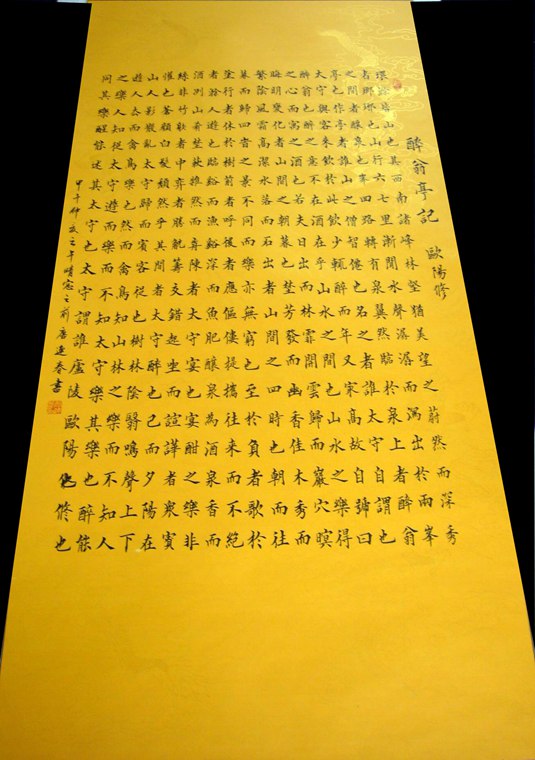 醉翁亭記 歐陽修
環滁皆山也其西南諸峰林壑猶美望之蔚然而深秀
者瑯琊也山行六七里漸聞水聲潺潺而瀉出於兩峯
之間者釀泉也峰回路轉有亭翼然臨於泉上者醉翁
亭也作亭者誰山之僧智僊也名之者誰太守自謂也
太守與客來飲於此飲少輒醉而年又最高故自號曰
醉翁也醉翁之意不在酒在乎山水之間也山水之樂得
之心而寓之酒也若夫日出而林霏開雲歸而巖穴暝
晦明變化者山間之朝暮也野芳發而幽香佳木秀而
繁陰風霜高潔水落而石出者山間之四時也朝而往
暮而歸四時之景不同而樂亦無窮也至於負者歌於
塗行者休於樹前者呼後者應傴僂提攜往来而不絕
者滁人遊也臨谿而漁谿深而魚肥釀泉為酒泉香而
酒冽山肴野蔌雜然而前陳者太守宴也宴酣之樂非
絲非竹射者中弈者勝觥籌交錯起坐而諠譁者眾賓
懽也蒼顏白髮頹然乎其間者太守醉也已而夕陽在
山人影散亂太守歸而賓客從也樹林陰翳鳴聲上下
遊人去而禽鳥樂也然而禽鳥知山林之樂而不知人
之樂人知從太守遊而樂而不知太守樂其樂也醉能
同其樂醒能述其太守也太守謂誰廬陵歐陽修也
甲午仲之午晴窓之前唐連春書